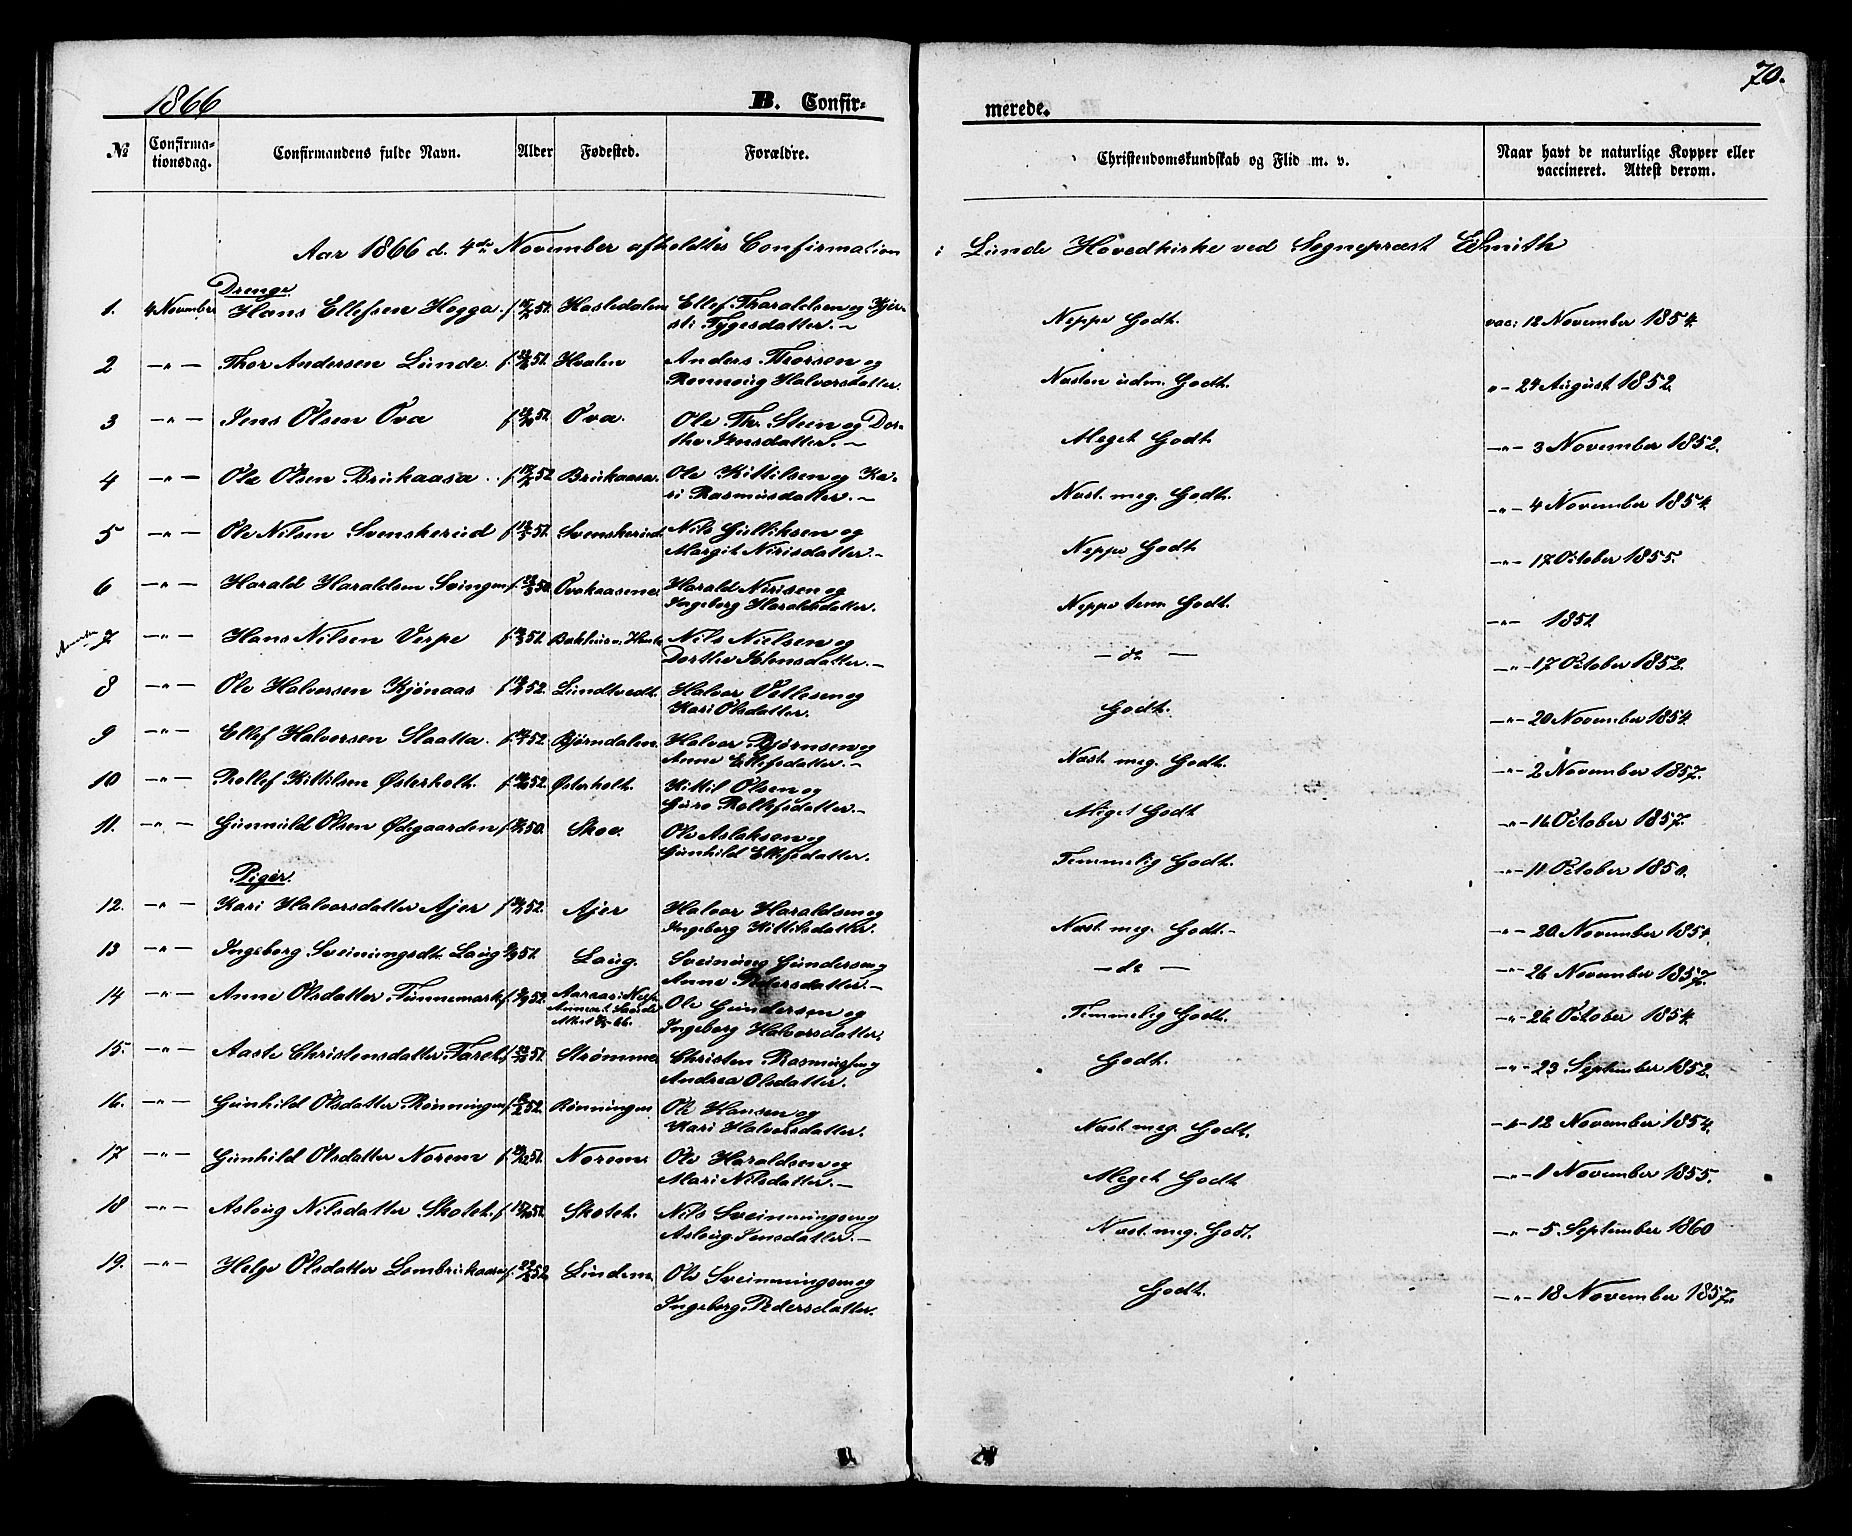 1866
B. Confir-
merede.
70.
№
Confirma-
tionsdag.
Confirmandens fulde Navn.
Alder
Fødested.
Forældre.
Christendomskundskab og Flid m. v.
Naar havt de naturlige Kopper eller
vaccineret. Attest derom.
Aar 1866 d. 4de November afholdtes Confirmation i Lunde Hovedkirke ved Sognepræst Smith
Drenge
1. 4 November Hans Ellefsen Hegga. Hasledalen Ellef Tharaldsen og Kjer-
sti Tygesdatter. Neppe Godt. vac: 12 November 1854.
2 —"— Thor Andersen Lunde. Hvalen Anders Thorsen og
Rønnoug Halvorsdatter. Næsten udm. Godt. "— 24 August 1852.
3 —"— Jens Olsen Ova Ova. Ole Th. Steen og Dor-
the Jensdatter. Meget Godt. —"— 3 November 1852.
4 —"— Ole Olsen Brukaasa. Brukaasa. Ole Kittilsen og Ka-
ri Rasmusdatter. Næst. meg. Godt. —"— 4 November 1854.
5 —"— Ole Nilsen Svenskerud Svenskerud. Nils Gulliksen og
Margit Nirisdatter. Neppe Godt. —"— 17 October 1855.
6 —"— Harald Haraldsen Svingen Ovakaasene. Harald Nirisen og
Ingeborg Haraldsdatter. Neppe tem. Godt. —"— 1852
7 —"— Hans Nilsen Verpe Nils Nielsen og
Dorthe Johnsdatter. — do — —"— 17 October 1852.
8 —"— Ole Halvorsen Kjønaas Lundtvedt. Halvor Vetlesen og
Kari Olsdatter. Godt. —"— 20 November 1854.
9 —"— Ellef Halvorsen Slaatta. Bjørndalen. Halvor Bjørnsen og
Anne Ellefsdatter. Næst. meg. Godt. —"— 2 November 1857.
10 —"— Rollef Kittilsen Østerholt. Østerholt. Kittil Olsen og
Guro Rollefsdatter. Meget Godt —"— 16 October 1857.
11. —"— Gunnuld Olsen Ødegaarden Skoe. Ole Aslaksen og
Gunhild Ellefsdatter. Temmelig Godt. —"— 11 October 1850.
Piger.
12. —"— Kari Halvorsdatter Ajer Ajer Halvor Haraldsen og
Ingeborg Kittilsdatter. Næst. meg. Godt. —"— 20 November 1854.
13 —"— Ingeborg Sveinungsdt. Laug Laug. Sveinung Gundersen og
Anne Pedersdatter. — do — —"— 26 November 1857.
14 —"— Anne Olsdatter Tinnemark Ole Gundersen og
Ingeborg Halvorsdatter. Temmelig Godt. —"— 26 October 1854.
15. —"— Aaste Christensdatter Strømme Christen Rasmussen og
Andrea Olsdatter. Godt. —"— 23 September 1852.
16. —"— Gunhild Olsdatter Rønningen Rønningen Ole Hansen og
Kari Halvorsdatter. Næst meg. Godt. —"— 12 November 1854.
17 —"— Gunhild Olsdatter Norem Norem Ole Haraldsen og
Mari Nilsdatter. Meget Godt —"— 1 November 1855.
18 —"— Aslaug Nilsdatter Skotet. Skotet. Nils Sveinungsen og
Aslaug Jensdatter. Næst. meg. Godt. —"— 5 September 1860
19. —"— Helge Olsdatter Linden Ole Sveinungsen og
Ingeborg Pedersdatter. Godt. —"— 18 November 1857.